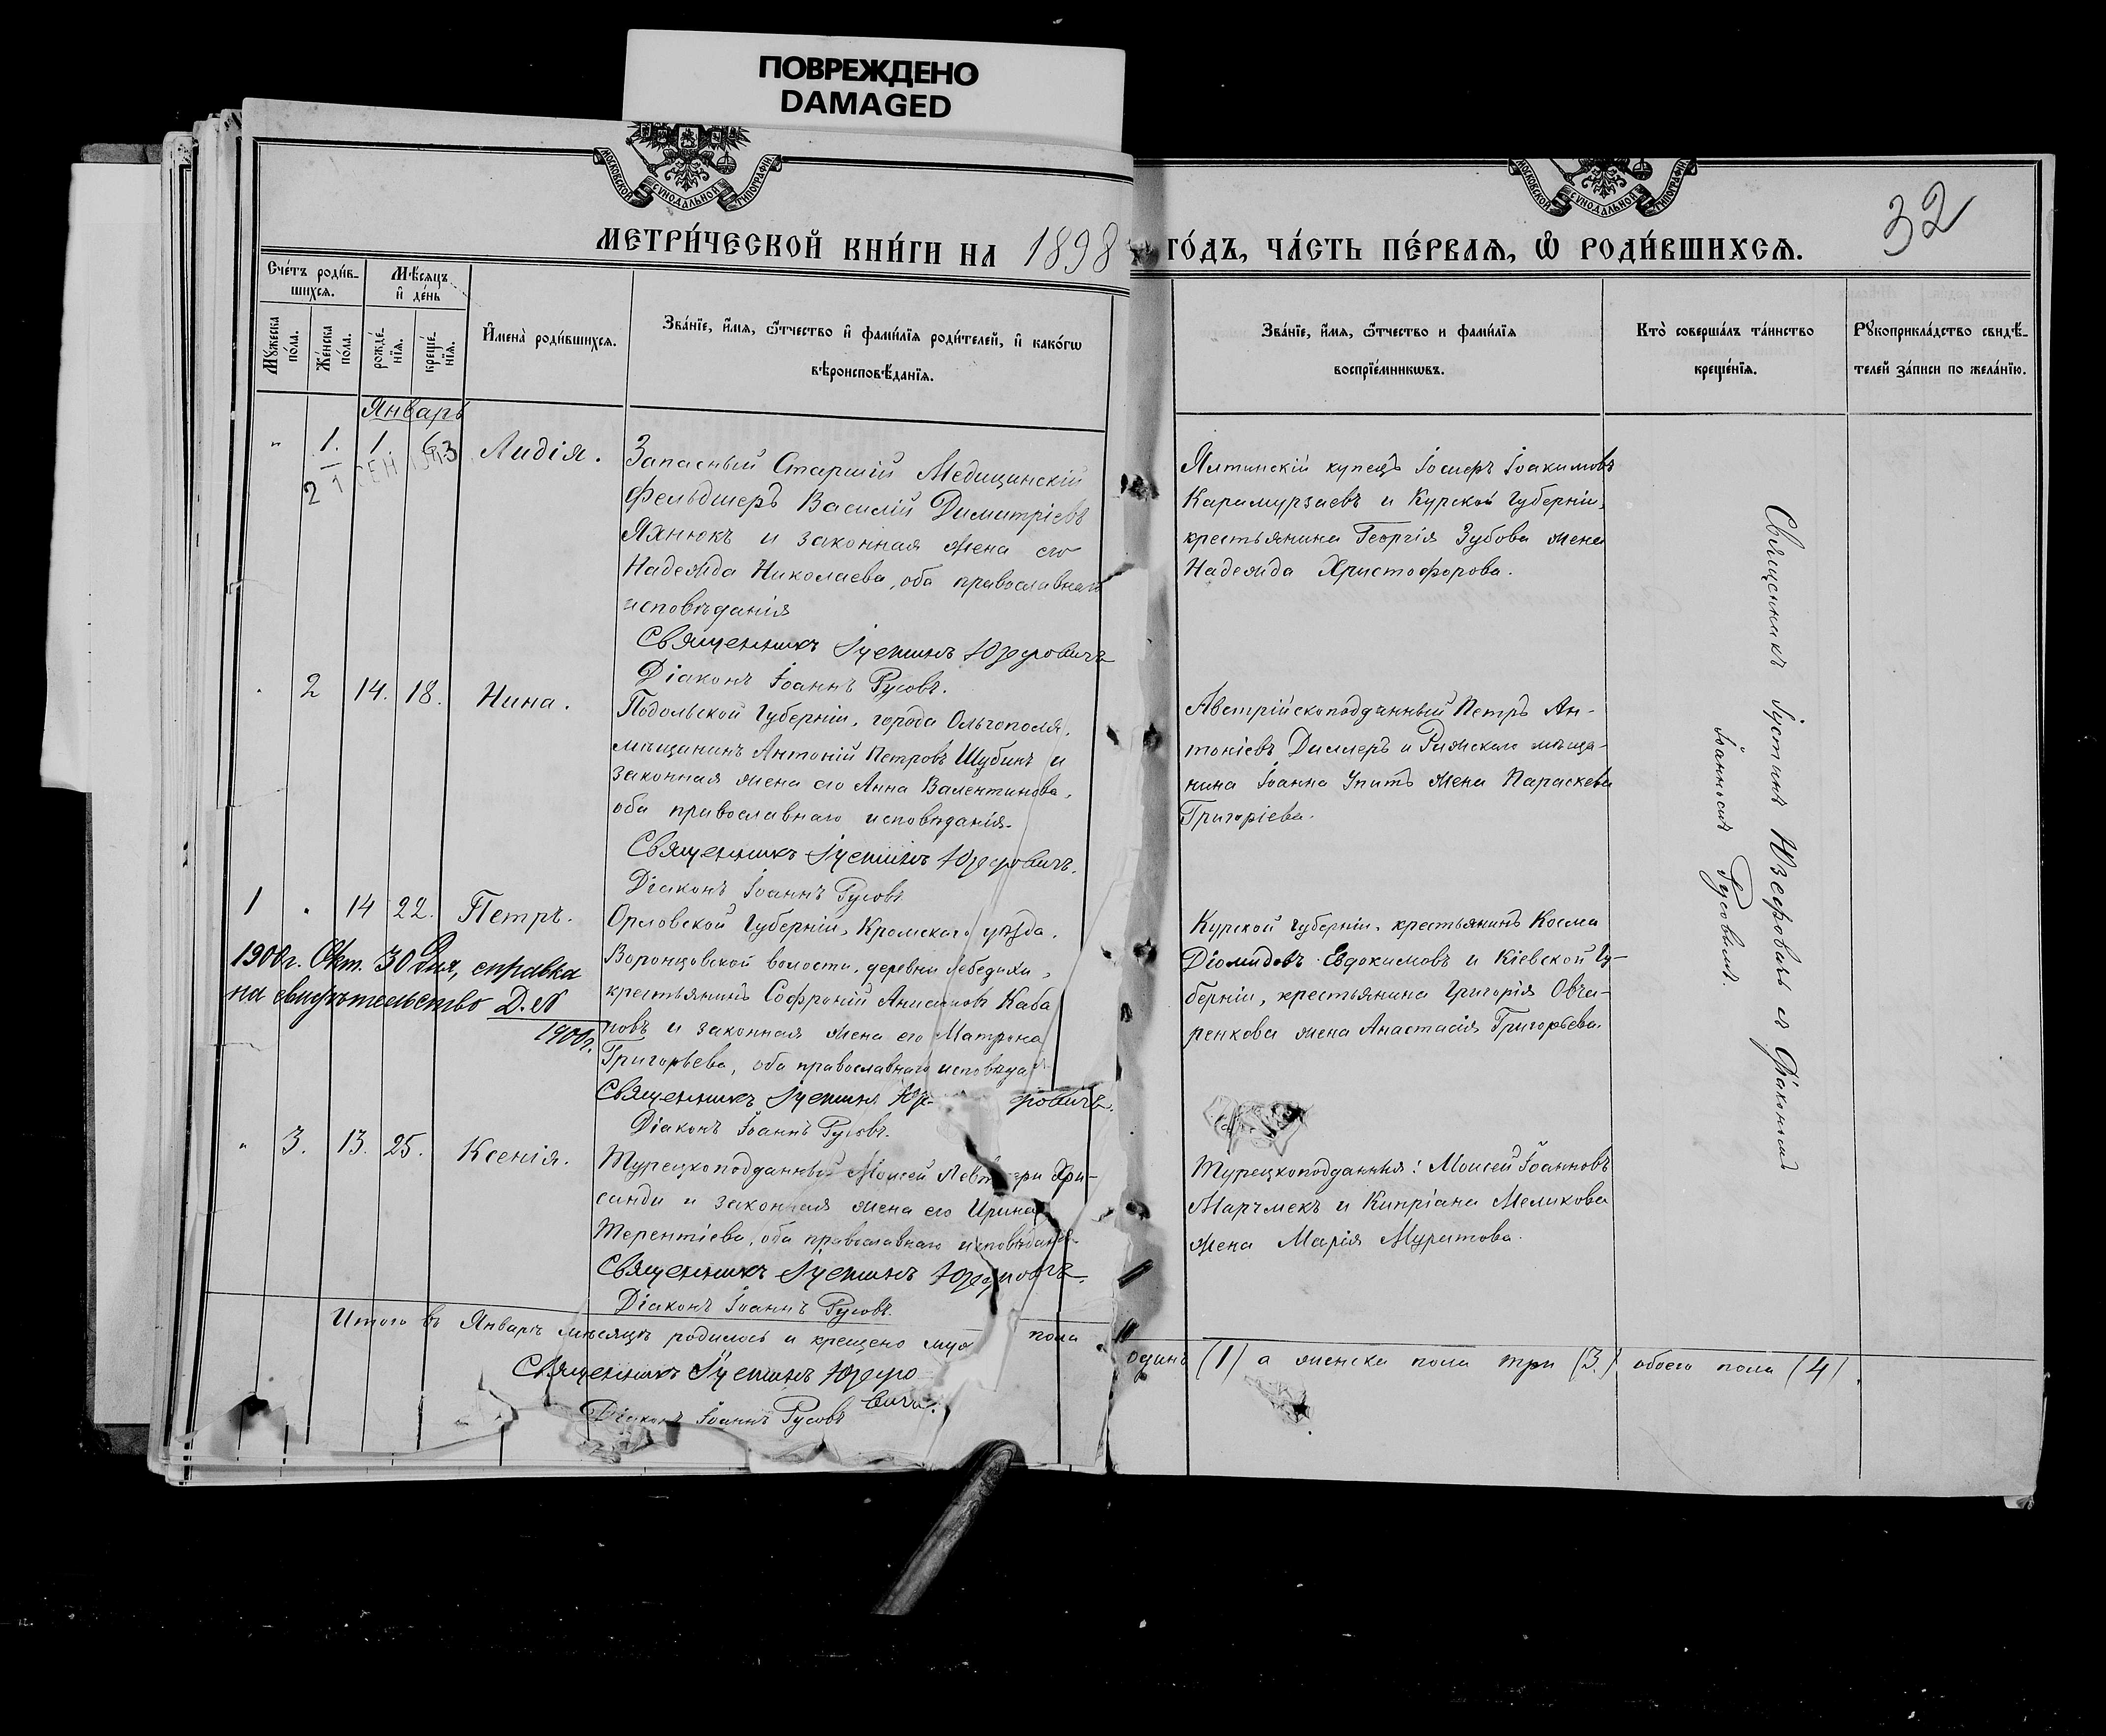 ПОВРЕЖДЕНО
DAMAGED
МОСКОВСКОЙ СѴНОДАЛЬНОЙ ТИПОГРАФІИ
МОСКОВСКОЙ СѴНОДАЛЬНОЙ ТИПОГРАФІИ
32
МЕТРИ́ЧЕСКОЙ КНИ́ГИ НА 1898 ГО́ДЪ, ЧА́СТЬ ПЕ́РВАѦ, Ѿ РОДИ́ВШИХСѦ.
Счéтъ роди́в-
шихсѧ.
Мѣсѧцъ
и҆ де́нь
Мꙋ́жеска
по́ла.
Же́нска
по́ла.
рожде́-
нїѧ.
креще́-
нїѧ.
И҆мена̀ роди́вшихсѧ.
Зва́нїе, и҆́мѧ, ѻ҆́тчество и҆ фами́лїѧ роди́телей, и҆ како́гѡ
вѣроисповѣ́данїѧ.
Зва́нїе, и҆́мѧ, ѻ҆́тчество и фами́лїѧ
воспрїе́мникѡвъ.
Кто̀ соверша́лъ та́инство
креще́нїѧ.
Рꙋкоприкла́дство свидѣ́-
телей за́писи по жела́нїю.
Январь
" 1. 1. 6 Лидія.
2
Запасный Старшій Медицинскій
фельдшеръ Василій Димитріевъ
Яхнюкъ и законная жена его
Надежда Николаева, оба православнаго
исповѣданія
Священникъ Іустинъ Юзефовичъ
Діаконъ Іоаннъ Русовъ.
Ялтинскій купецъ Іосифъ Іоакимовъ
Карамурзаевъ и Курской губерніи,
крестьянина Георгія Зубова жена
Надежда Христофорова.
" 2 14. 18. Нина.
Подольской губерніи, города Ольгополя,
мѣщанинъ Антоній Петровъ Шубинъ и
законная жена его Анна Валентинова,
оба православнаго исповѣданія.
Священникъ Іустинъ Юзефовичъ.
Діаконъ Іоаннъ Русовъ
Австрійскоподданный Петръ Ан-
тоніевъ Диллеръ и Рижскаго мѣща-
нина Іоанна Упитъ жена Параскева
Григоріева.
1 " 14 22. Петръ.
1900 г. Окт. 30 дня, справка
на свидѣтельство Д. №
1900 г.
Орловской губерніи, Кромскаго уѣзда,
Воронцовской волости, деревни Лебедихи,
крестьянинъ Софроній Анисимовъ Каба
новъ и законная жена его Матрона
Григорьева, оба православнаго исповѣда
Священникъ Іустинъ Юз фовичъ.
Діаконъ Іоаннъ Русовъ.
Курской губерніи, крестьянинъ Косма
Діомидовъ Евдокимовъ и Кіевской гу-
берніи, крестьянина Григорія Овча-
ренкова жена Анастасія Григорьева.
" 3. 13. 25. Ксенія.
Турецкоподданный Моисей Хри-
санди и законная жена его Ирина
Терентіева, оба православнаго исповѣданія
Священникъ Іустинъ Юзефовичъ.
Діаконъ Іоаннъ Русовъ.
Турецкоподданные: Моисей Іоанновъ
Марчмекъ и Кипріана Меликова
жена Марія Муратова.
Священникъ Іустинъ Юзефовичъ съ Діакономъ
Іоанномъ Русовымъ.
Итого въ Январѣ мѣсяцѣ родилось и крещено муж пола одинъ (1) а женска пола три (3) обоего пола (4).
Священникъ Іустинъ Юзефо
вичъ.
Діаконъ Іоаннъ Русовъ